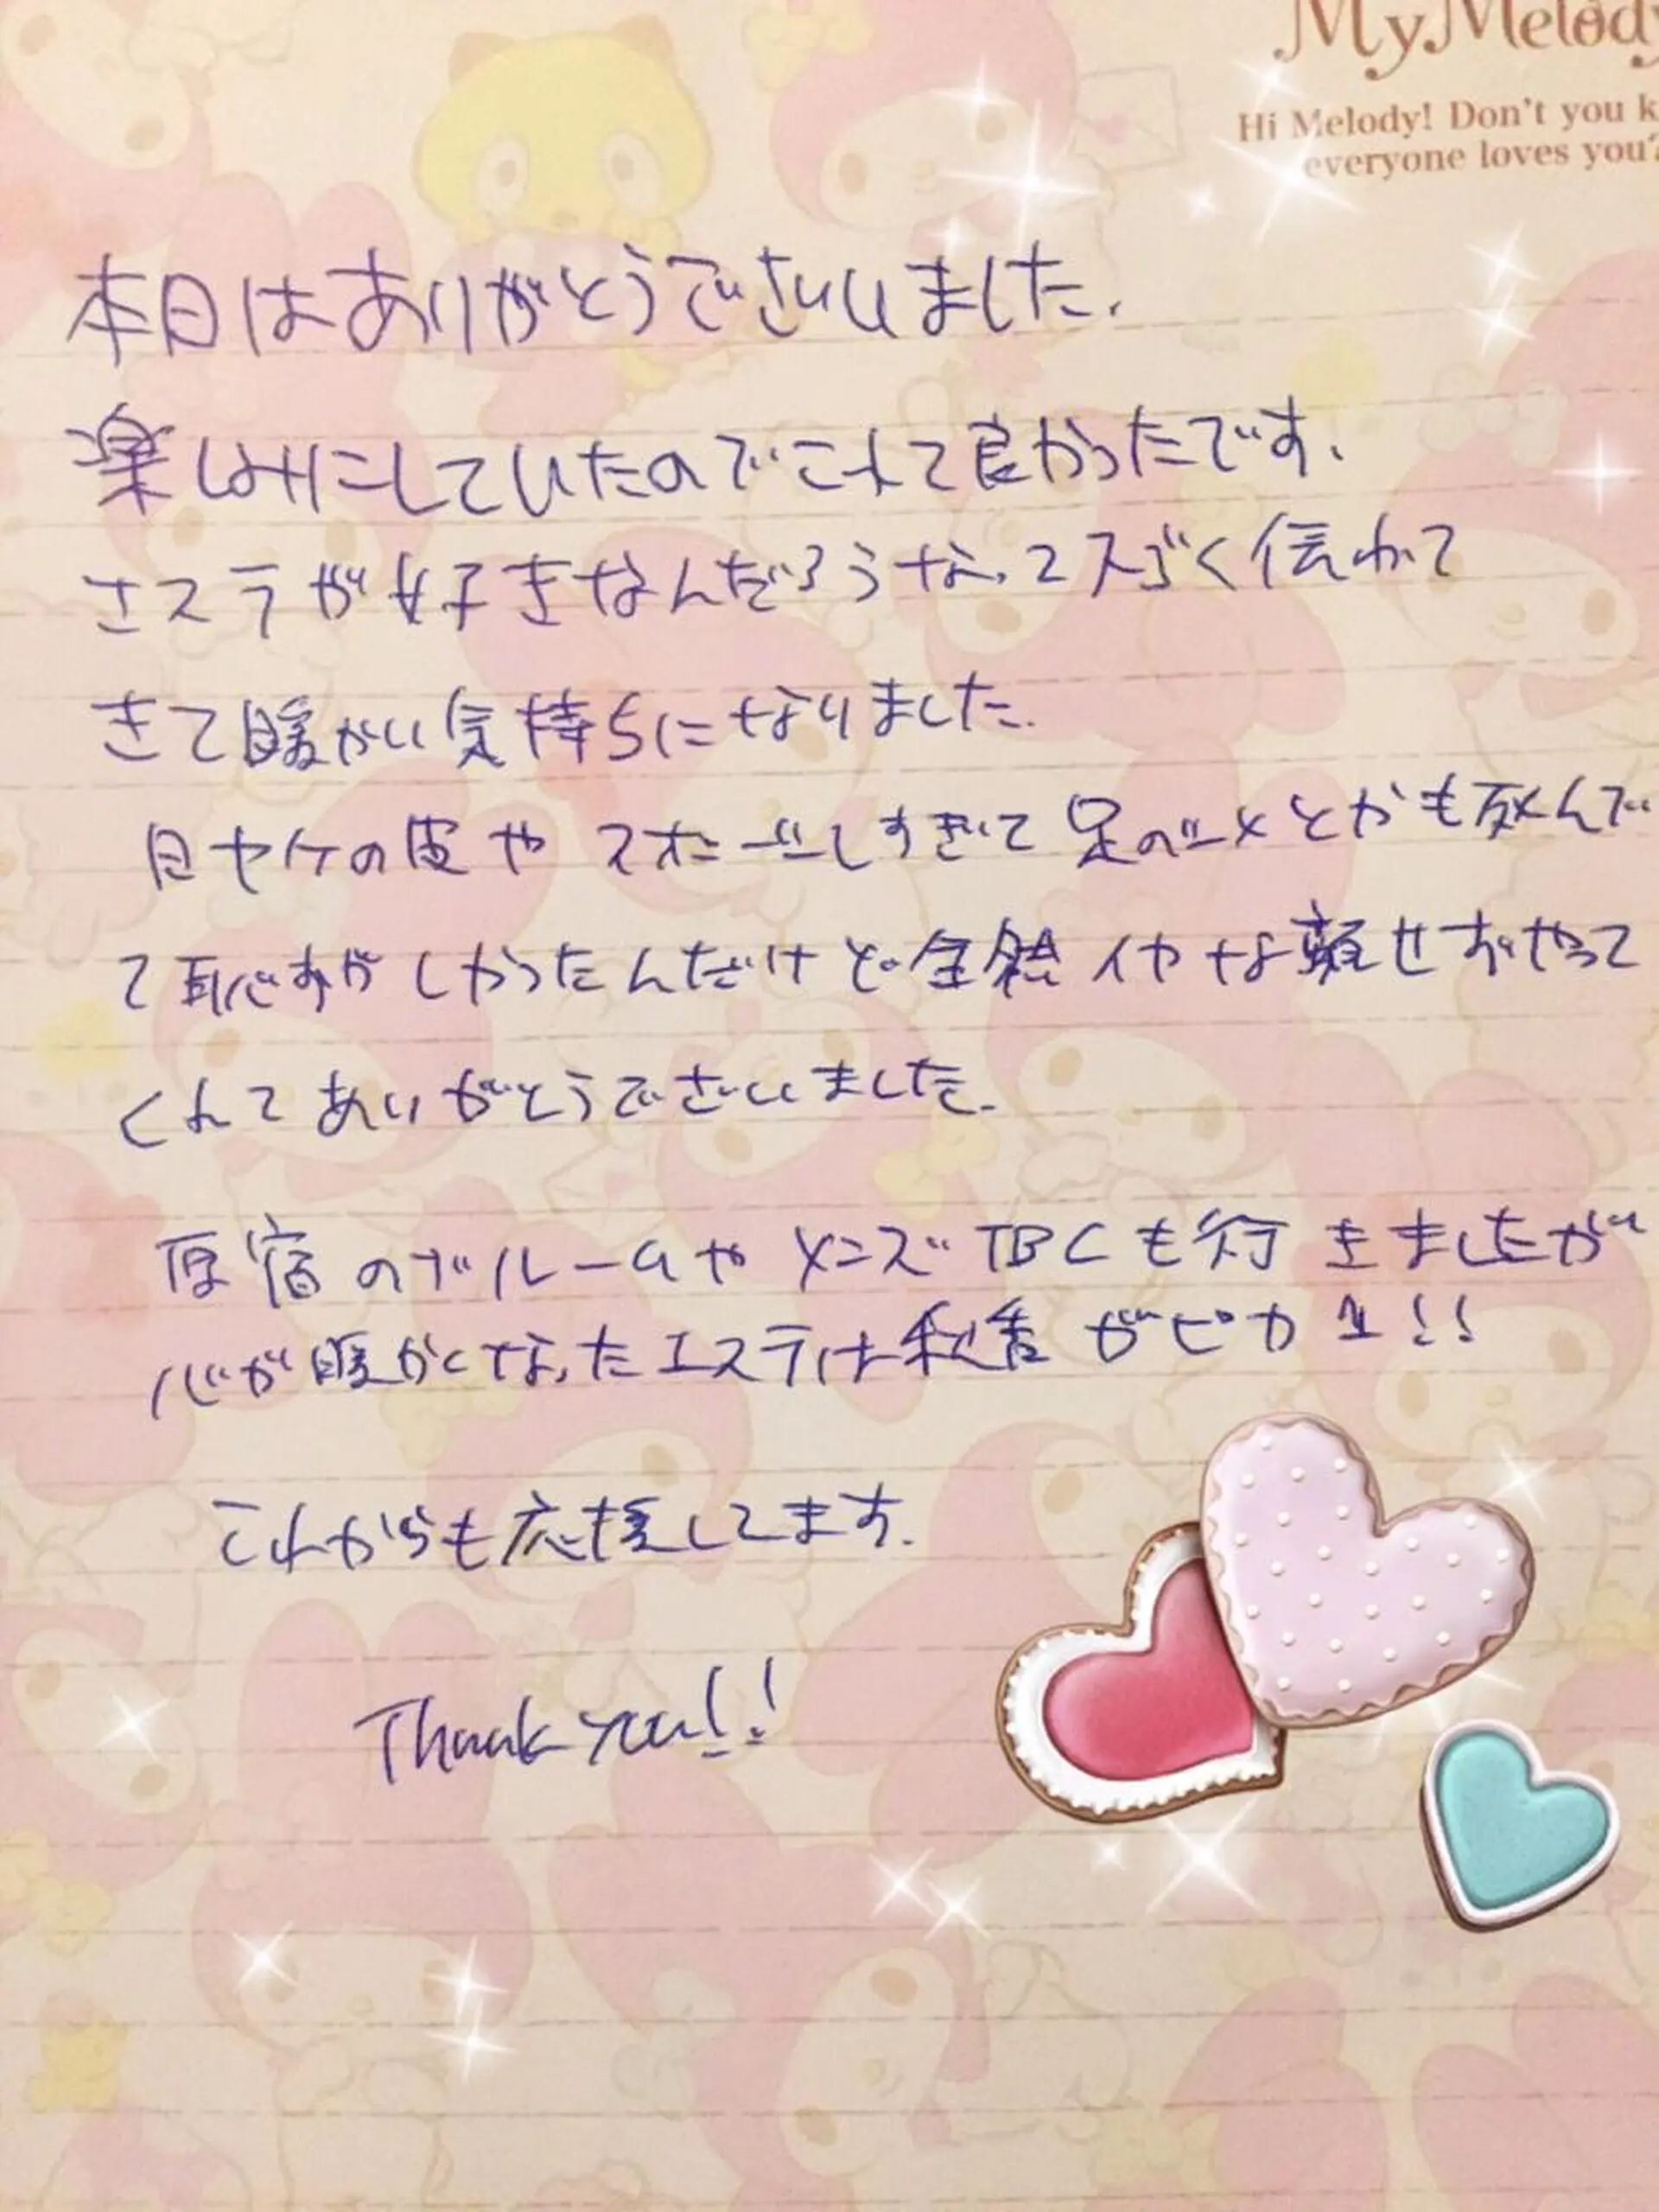 My Melody
Hi Melody! Don't you k
everyone loves you?
本日はありがとうございました.
楽しみにしていたのでこれて良かったです.
エステが好きなんだろうなってスごく伝わって
きて暖かい気持ちになりました.
日ヤケの皮やスポーツしすぎて足のツメとかも死んで
て恥ずかしかったんだけど全然イヤな顔せずやって
くれてありがとうございました.
原宿のブルームやメンズTBCも行きましたが
心が暖かくなったエステは秋香がピカ1!!
これからも応援してます.
Thank you!!